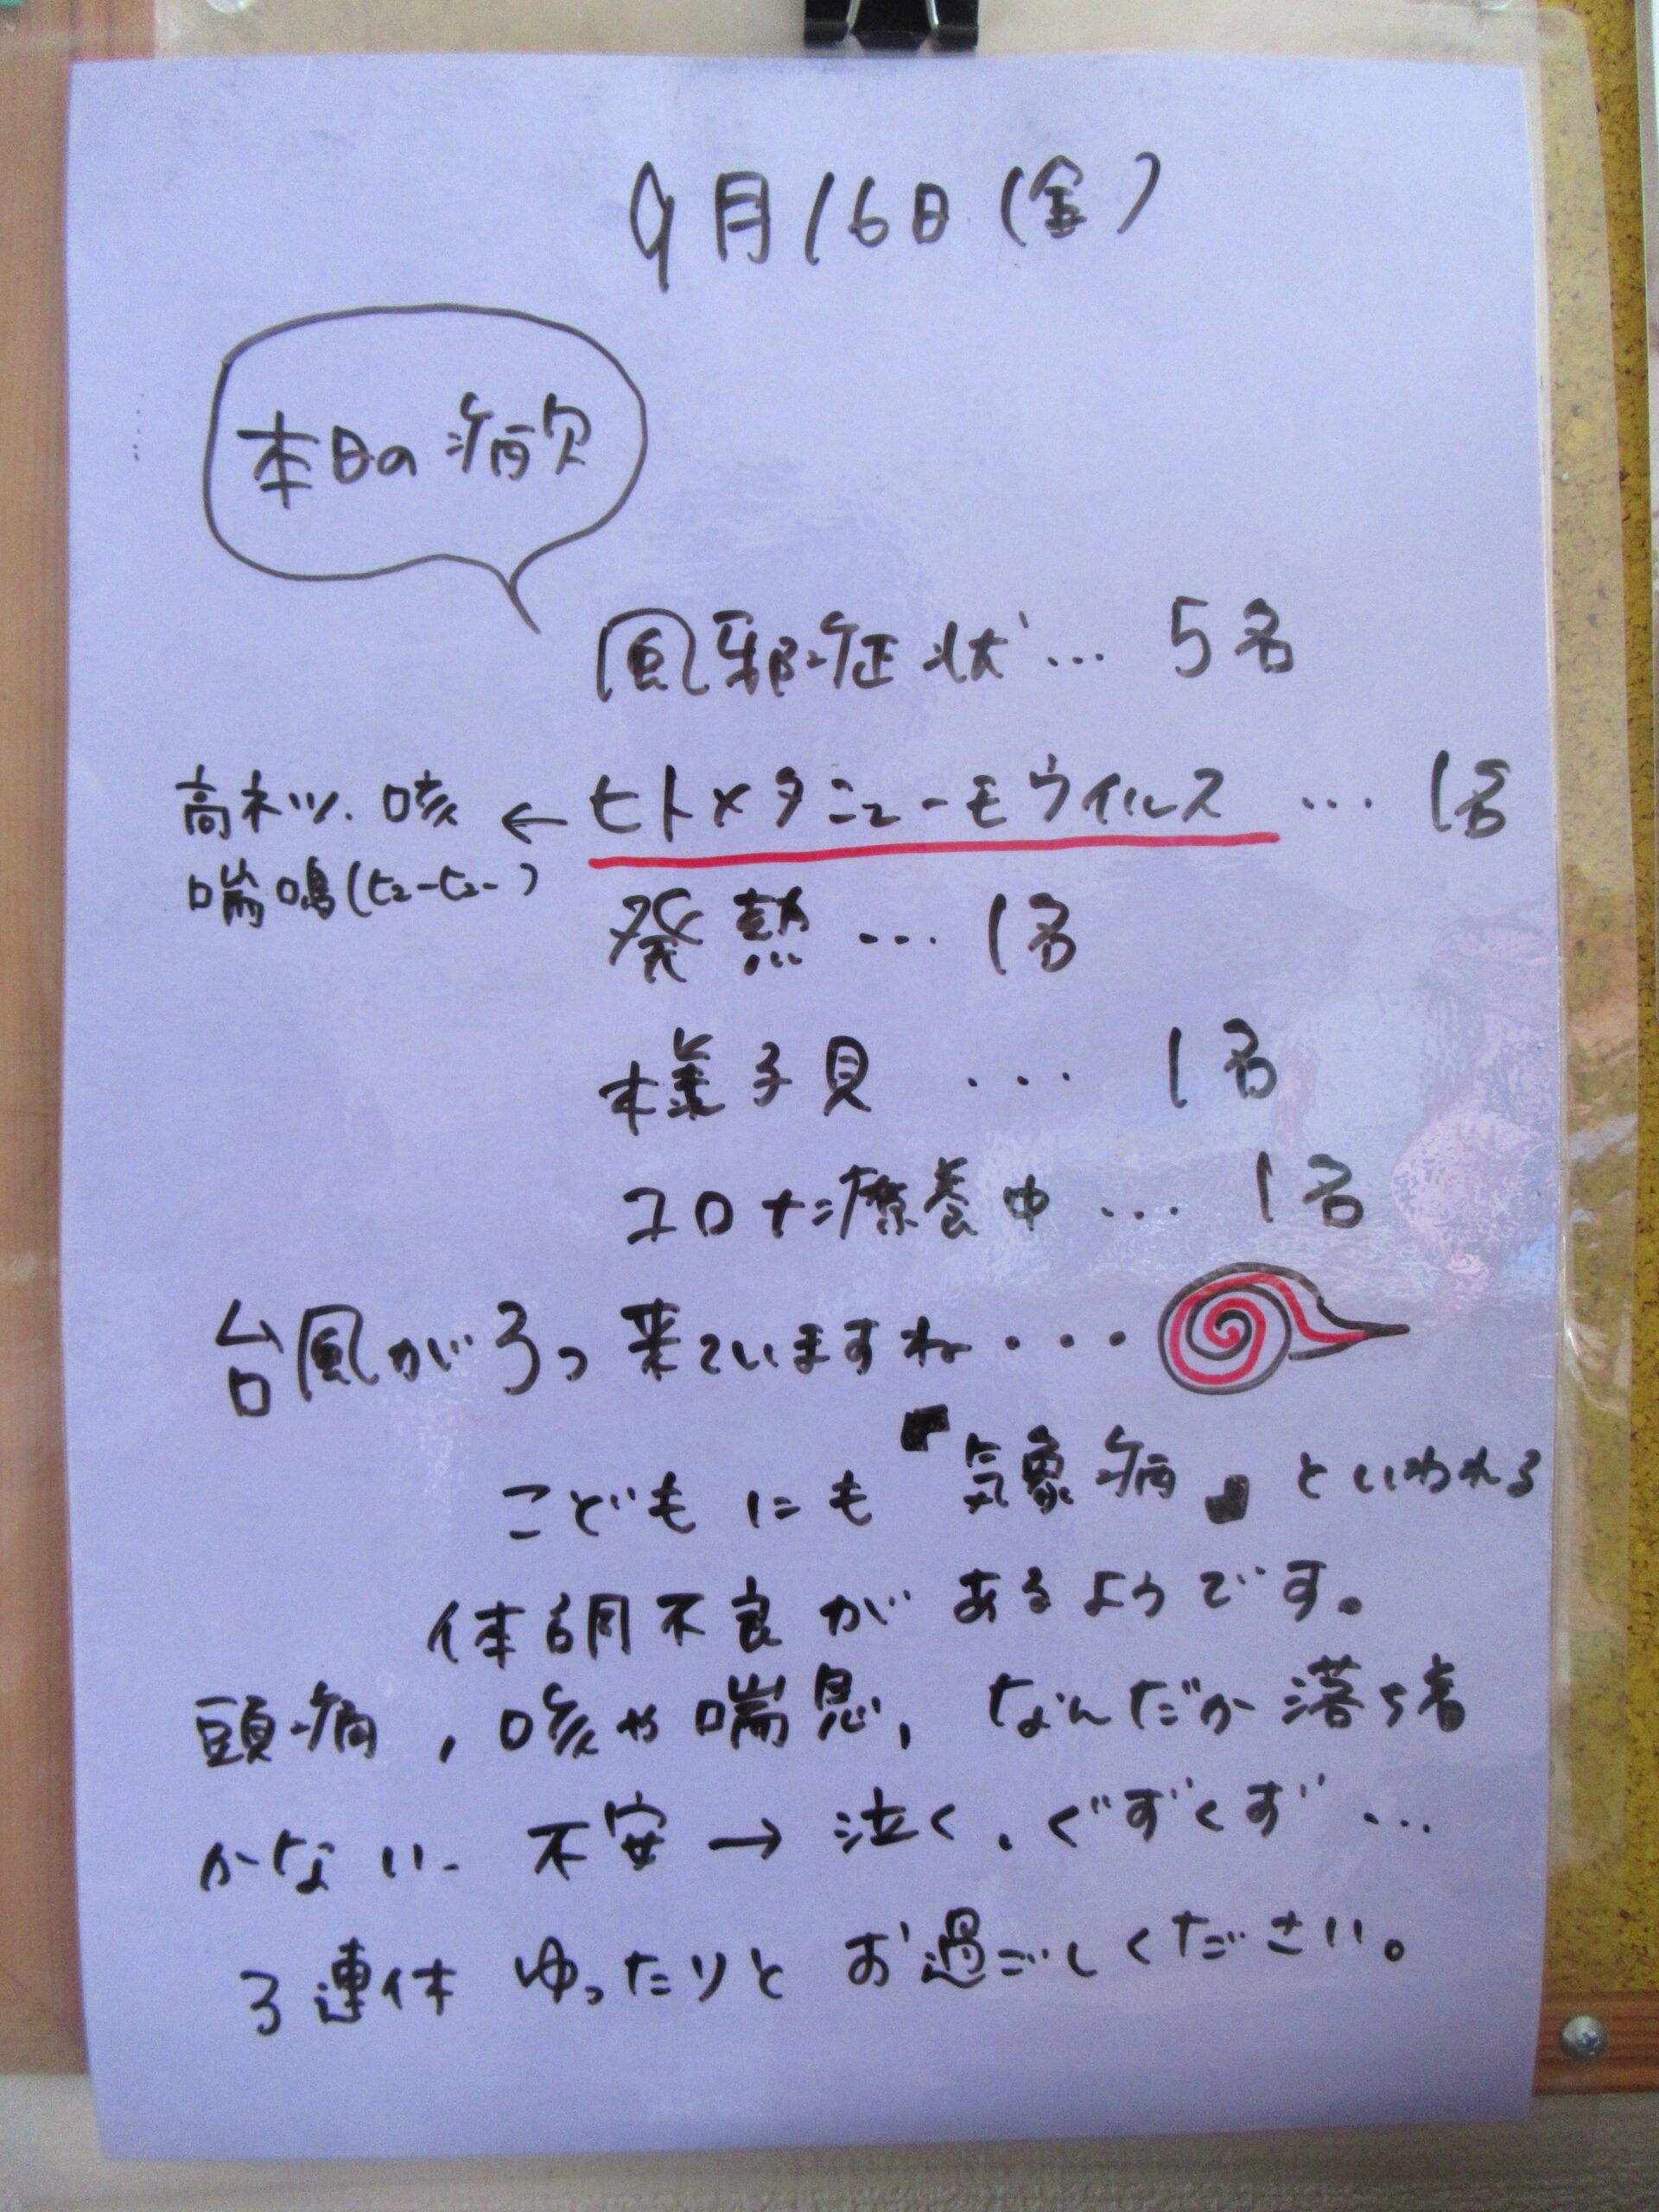 9月16日(金)
本日の病欠
風邪症状… 5名
ヒトメタニューモウイルス … 1名
←高ネツ、咳
喘鳴(ヒューヒュー)
発熱 … 1名
様子見 … 1名
コロナ療養中 … 1名
台風が3つ来ていますね・・・
こどもにも『気象病』といわれる
体調不良があるようです。
頭痛、咳や喘息、なんだか落ち着
かない、不安→泣く、ぐずぐず…
3連休ゆったりとお過ごしください。